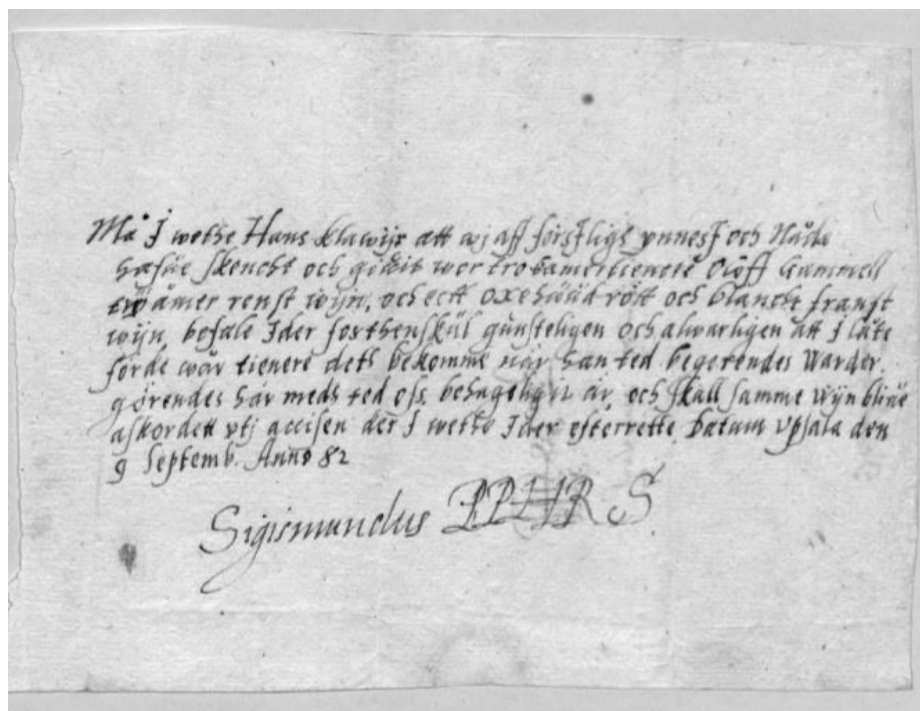 Må I wethe Hans Klawijr att wj aff förstligs ynnest och Nåde
hafue skencht och giffuit wor tro Camertienere Oloff Gammell
twå åmer renst wijn, och ett oxehuud rött och blancht franst
wijn, befale Ider forthenskul gunsteligen och alwarligen att I låte
förde wår tienere dets bekomme når han ted begerendes Warder.
görendes hår meds ted oss behageligit år, och skall samme wijn bliue
afkordett vtj accisen der I wethe Ider efterrette, Datum Vpsala den
9 Septemb. Anno 82
Sigismundus PPHRS